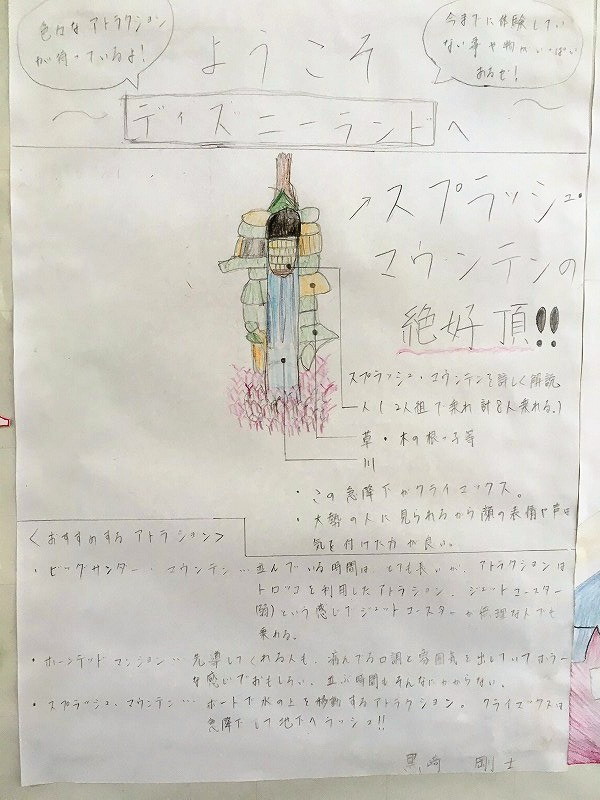 色々なアトラクション
が待っているよ!
今までに体験してい
ない事や物がいっぱい
あるぜ!
ようこそ
~ディズニーランドへ~
↗スプラッシュ・
マウンテンの
絶好頂!!
スプラッシュ・マウンテンを詳しく解説
人(2人組で乗れ 計8人乗れる。)
草・木の根っ子等
川
・この急降下がクライマックス。
・大勢の人に見られるから顔の表情や声は
気を付けた方が良い。
<おすすめするアトラション>
・ビッグサンダー・マウンテン…並んでいる時間は、とても長いが、アトラクションは
トロッコを利用したアトラション、ジェットコースター
という感じでジェットコースターが無理な人でも
乗れる。
・ホーンテッドマンション…先導してくれる人も、病んでる口調と雰囲気を出していてホラー
な感じでおもしろい。並ぶ時間もそんなにかからない。
・スプラッシュ・マウンテン…ボートで水の上を移動するアトラクション。クライマックスは
急降下して地下へラッシュ!!
黒崎 剛士